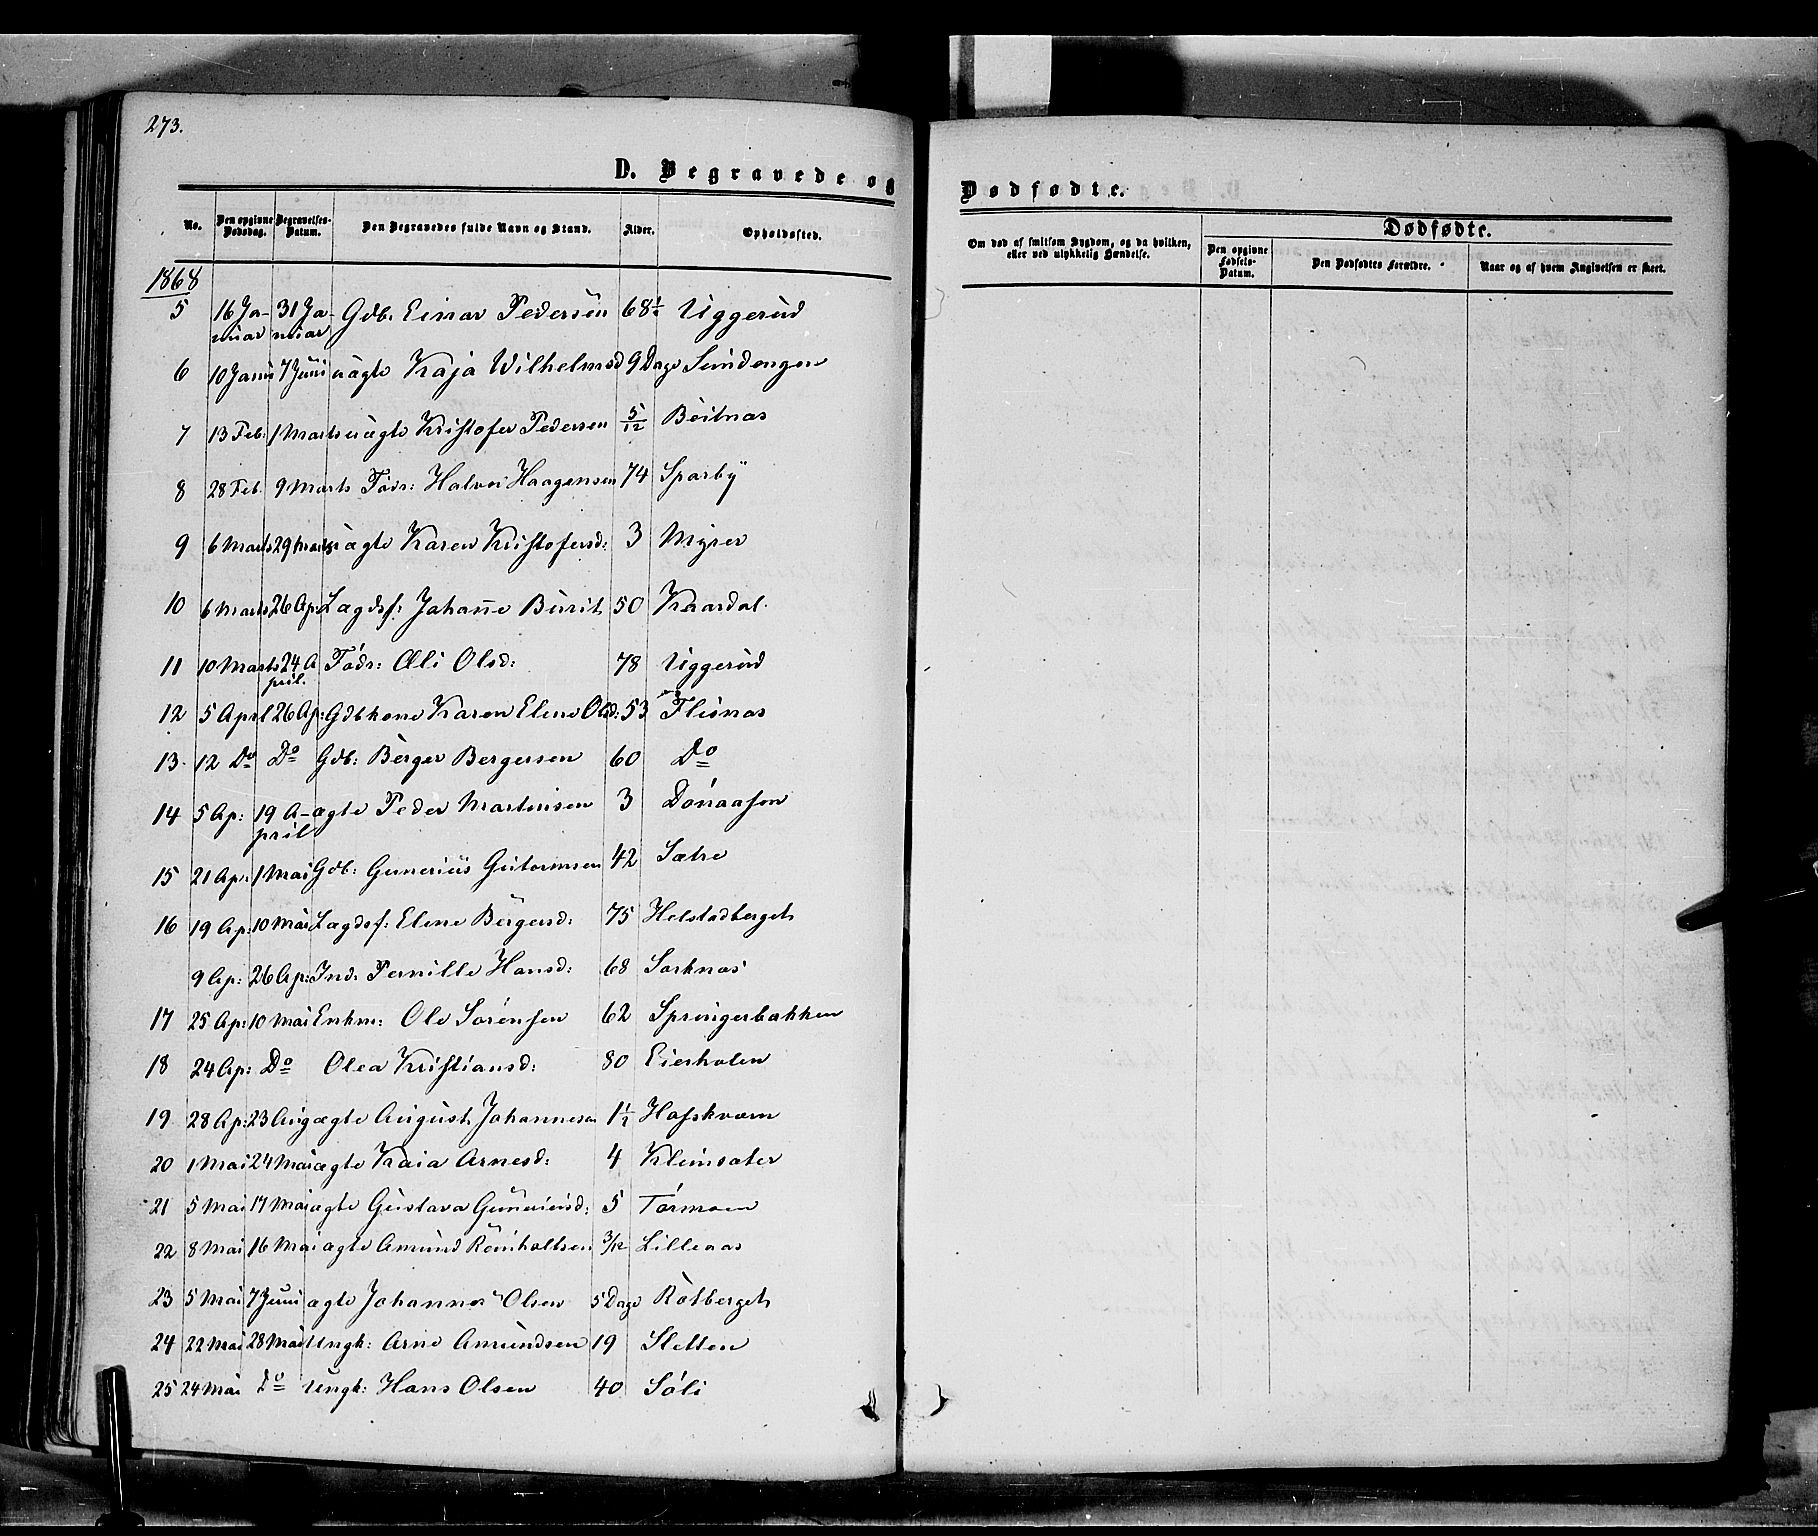 273.
D. Begravede og
Dødfødte.
No. Den opgivne Dødsdag. Begravelses-Datum. Den Begravedes fulde Navn og Stand. Alder. Opholdssted.
Om død af smitsom Sygdom, og da hvilken, eller ved ulykkelig Hændelse.
Dødfødte.
Den opgivne Fødsels-Datum. Den Dødfødtes Forældre. Naar og af hvem Angivelsen er skeet.
1868
5 16 Januar 31 Januar Gdb. Einar Pedersen 68½ Uggerud
6 10 Januar 7 Juni uægte Kaja Wilhelmsd 9 Dage Sundengen
7 13 Feb: 1 Marts uægte Kristofer Pedersen 5/12 Beitnæs
8 28 Feb. 9 Marts Fødr: Halvor Haagensen 74 Sparby
9 6 Marts 29 Marts uægte Karen Kristofersd: 3 Myrer
10 6 Marts 26 Ap: Lægdsf: Johanne Burit 50 Kaardal.
11 10 Marts 24 April. Fødr: Oli Olsd: 78 Uggerud
12 5 April 26 Ap: Gdbkone Karen Elene Olsd: 53 Flisnæs
13 12 Do Do Gdb: Berger Bergersen 60 Do
14 5 Ap: 19 April ægte Peder Martinsen 3 Dónaasen
15 21 Ap: 1 Mai Gdb: Gunerius Gutormsen 42 Sætre
16 19 Ap: 10 Mai Lægdsf: Elene Bergersd: 75 Helstadberget
9 Ap: 26 Ap: Ind: Pernille Hansd: 68 Sorknæs
17 25 Ap: 10 Mai Enkm: Ole Sørensen 62 Springerbakken
18 24 Ap: Do Olea Kristiansd: 80 Eierholen
19 28 Ap: 23 Aug ægte August Johannesen 1½ Hofskvam
20 1 Mai 24 Mai ægte Kaia Arnesd: 4 Kleinsæter
21 5 Mai 17 Mai ægte Gustava Guneriusd: 5 Tørmoen
22 8 Mai 16 Mai ægte Amund Reinholtsen 3/12 Lilleaas
23 5 Mai 7 Juni ægte Johannes Olsen 5 Dage Rótberget
24 22 Mai 28 Mai Ungk: Arne Amundsen 19 Sletten
25 24 Mai Do Ungk: Hans Olsen 40 Sóli